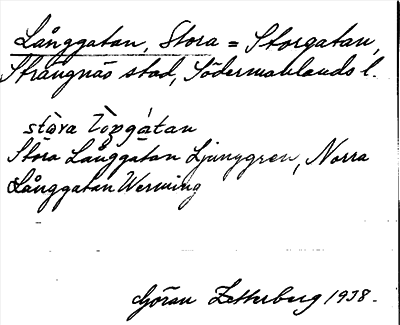 Långgatan, Stora = Storgatan,
Strängnäs stad, Södermanlands l.
stòra
Stora Långgatan Ljunggren, Norra
Långgatan Werming
Göran Zetterberg 1938.